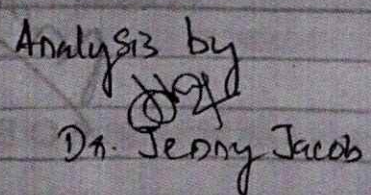 Analysis by
Dr. Jenny Jacob